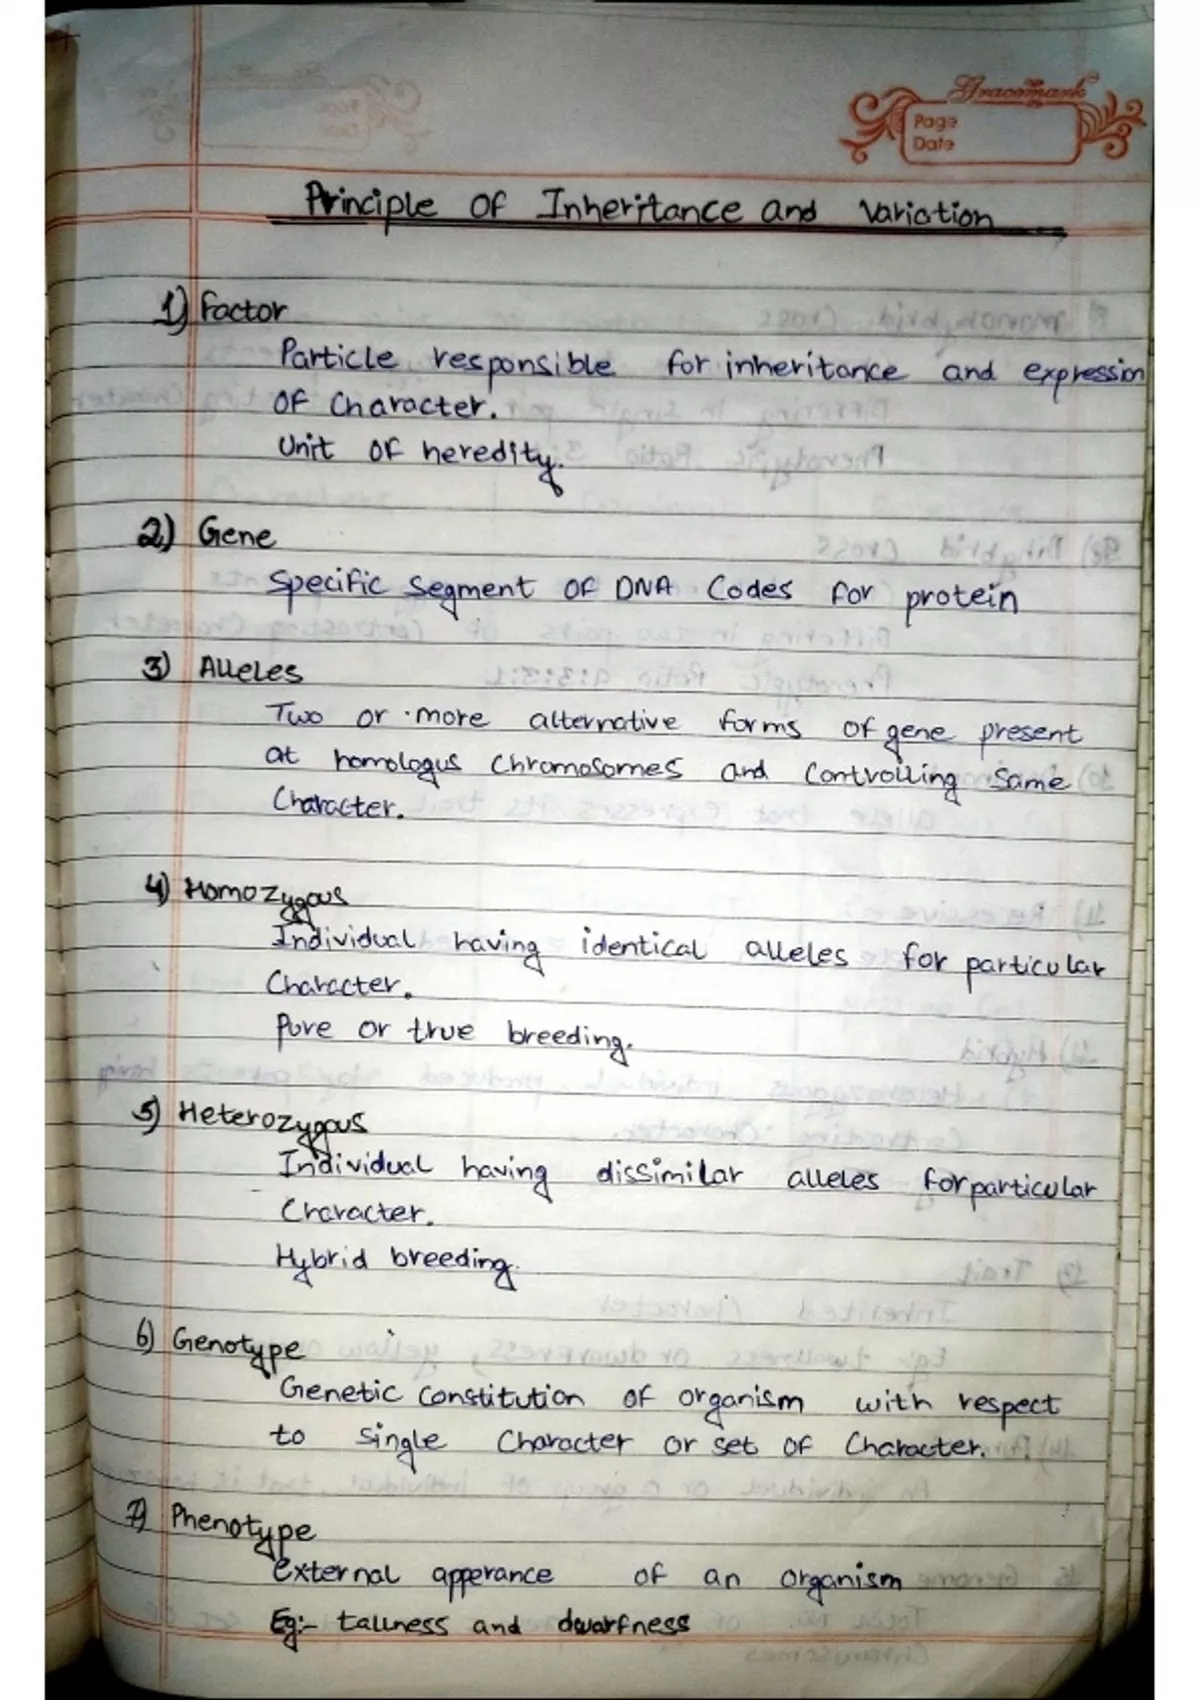 Gracemark
Page
Date
Principle of Inheritance and Variation
1) Factor
Particle responsible for inheritance and expression
of Character.
Unit of heredity.
2) Gene
Specific segment of DNA Codes for protein
3) Alleles
Two or more alternative forms of gene present
at homologus Chromosomes and Controlling Same
Character.
4) Homozygous
Individual having identical alleles for particular
Character.
Pure or true breeding.
5) Heterozygous
Individual having dissimilar alleles for particular
Character.
Hybrid breeding.
6) Genotype
Genetic Constitution of organism with respect
to single Character or set of Character.
7) Phenotype
External apperance of an organism
Eg:- tallness and dwarfness